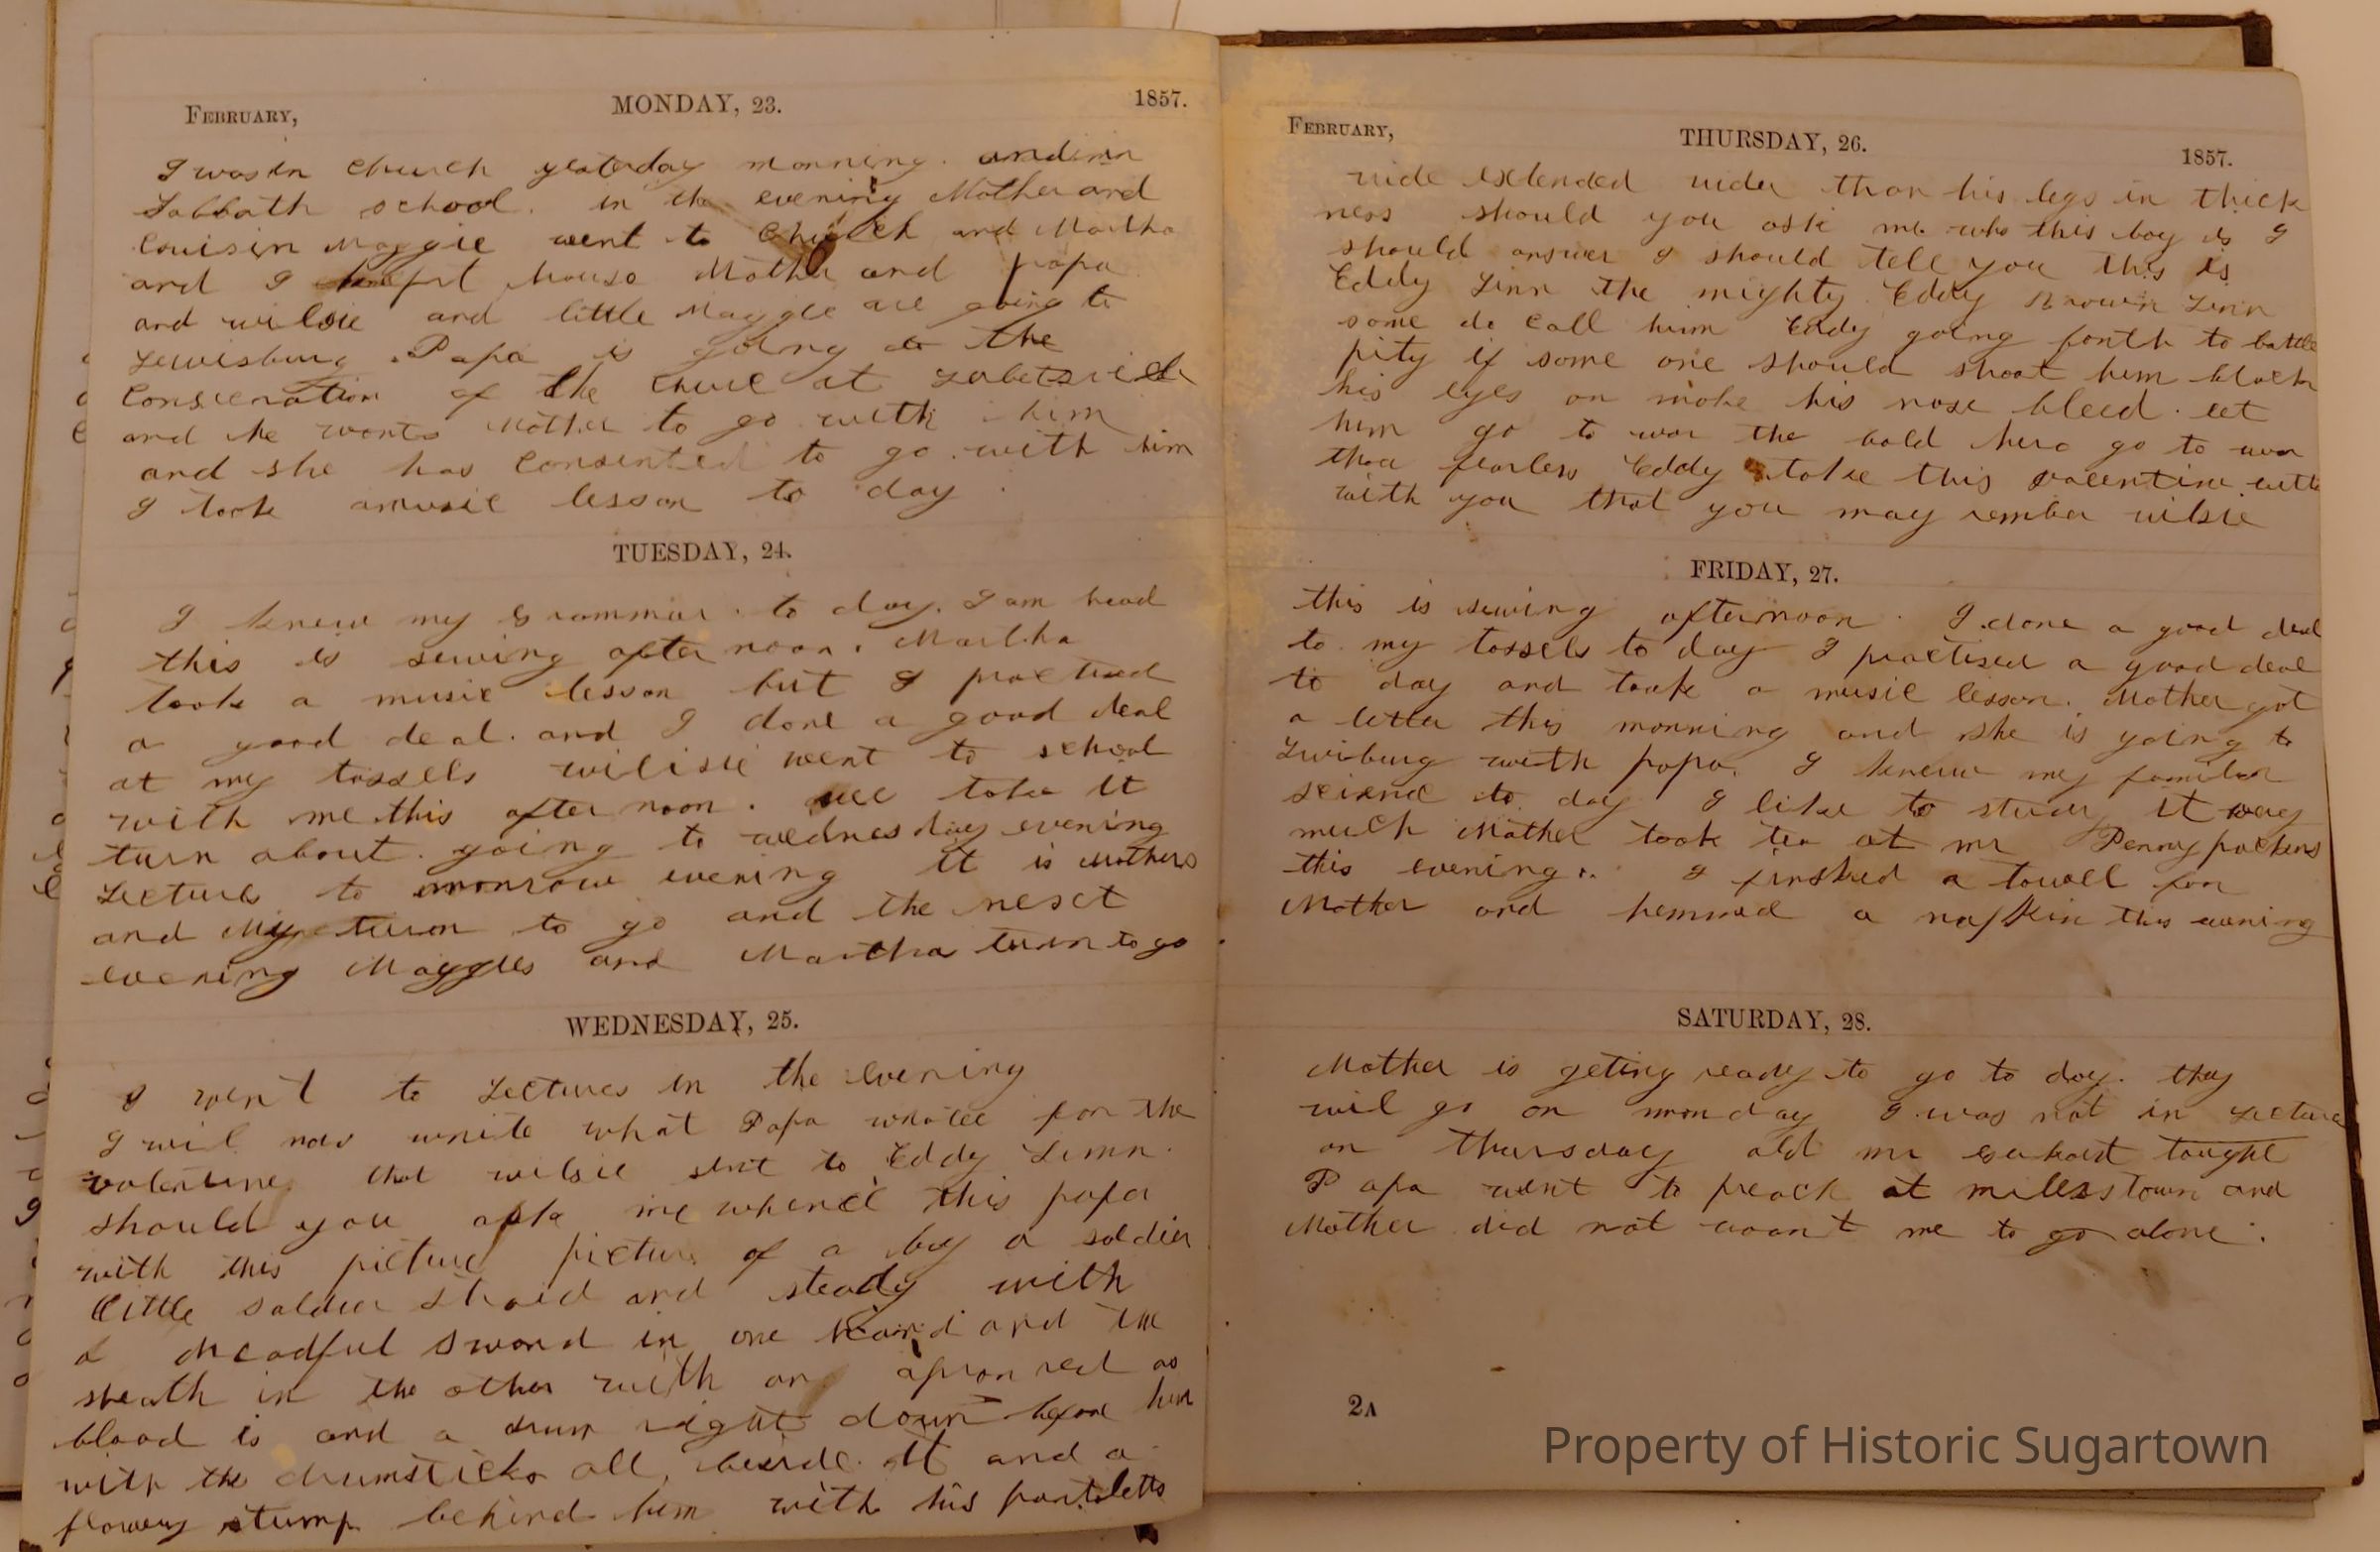 February,
MONDAY, 23.
1857.
I was in church yesterday morning. and in
Sabbath school. in the evening Mother and
Couisin Maggie went to Church and Martha
and I kept house Mother and papa
and wilsie and little Maggie are going to
Lewisburg. Papa is going to the
Conscration of the Churc at
and he wants Mother to go with him
and she has Consented to go with him
I took a music lesson to day.
TUESDAY, 24.
I knew my Grammar. to day. I am head
this is sewing afternoon. Martha
took a music lesson but I practised
a good deal. and I done a good deal
at my tossels wilisie went to school
with me this afternoon. we take it
turn about. going to wednesday evening
Lectures to morrow evening it is Mothers
and My turn to go and the nesct
evening Maggies and Martha turn to go
WEDNESDAY, 25.
I went to Lectures in the evening
I wil now write what Papa wrote for the
valentine that wilsie sent to Eddy Linn.
should you aske me whence this papa
with this picture picture of a boy a soldier
little soldier and steady with
a dreadful sword in one hand and the
sheath in the other with an apron red as
blood is and a drum right down before him
with the drumsticks all beside it and a
flowery stump behind him with his pantaletts
February,
THURSDAY, 26.
1857.
wide extended wider than his legs in thick
ness should you ask me who this boy is I
should answer I should tell you this is
Eddy Linn the mighty Eddy Brown Linn
some do call him Eddy going forth to battle
pity if some one should shoot him black
his eyes or make his nose bleed. let
him go to war the bold hero go to war
thou fearless Eddy take this valentine with
with you that you may rember wilsie
FRIDAY, 27.
this is sewing afternoon. I done a good deal
to my tossels to day I practised a good deal
to day and took a music lesson. Mother got
a letter this morning and she is going to
Lwisburg with papa. I knew my familiar
science to day I like to study it very
much Mother took tea at mr Pennypackers
this evening. I finshed a towell for
Mother and hemmed a napkin this evening
SATURDAY, 28.
Mother is geting ready to go to day. thay
wil go on monday I was not in Lecture
on thursday old mr taught
Papa went to preach at millesstown and
Mother did not want me to go alone.
2A
Property of Historic Sugartown